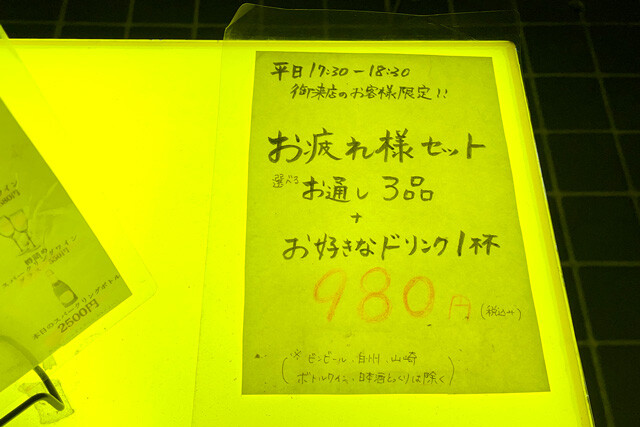 平日 17:30-18:30
御来店のお客様限定!!
お疲れ様セット
選べる お通し 3品
+
お好きなドリンク1杯
980円 (税込み)
(※ ビンビール、白州、山崎
ボトルワイン、日本酒とっくりは除く)
本日のスパークリングボトル
2500円